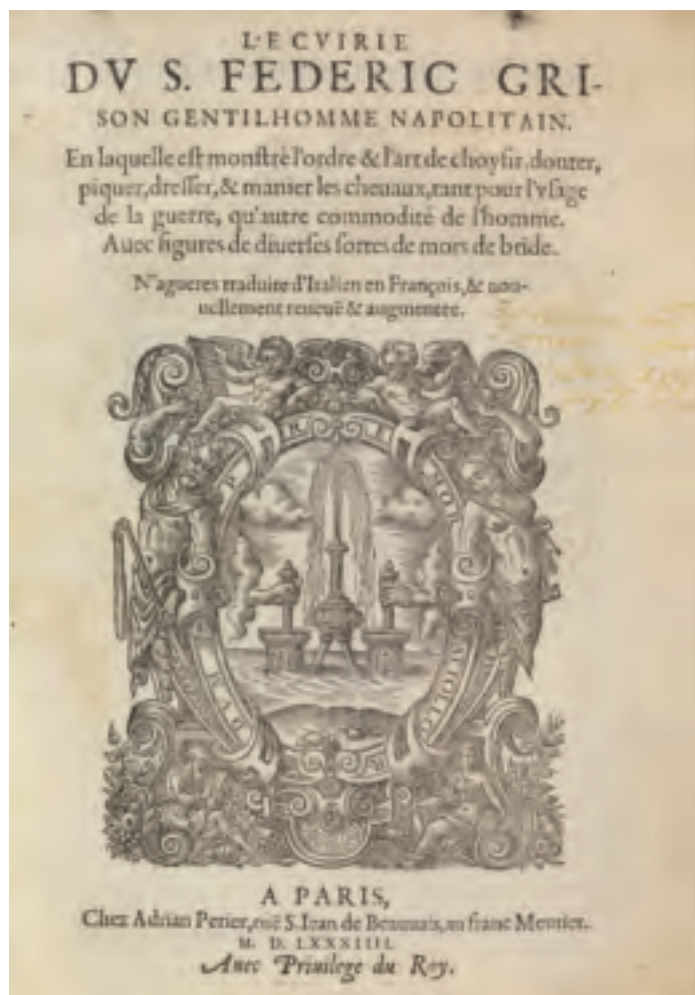 L'ECVIRIE
DV S. FEDERIC GRI-
SON GENTILHOMME NAPOLITAIN.
En laquelle est monstré l'ordre & l'art de choysir, donter,
piquer, dresser, & manier les cheuaux, tant pour l'vsage
de la guerre, qu'autre commodité de l'homme.
Auec figures de diuerses sortes de mors de bride.
N'agueres traduite d'Italien en François, & nou-
uellement reueuë & augmentee.
A PARIS,
Chez Adrian Perier, ruë S. Iean de Beauuais, au franc Meurier.
M. D. LXXXIIII.
Auec Priuilege du Roy.